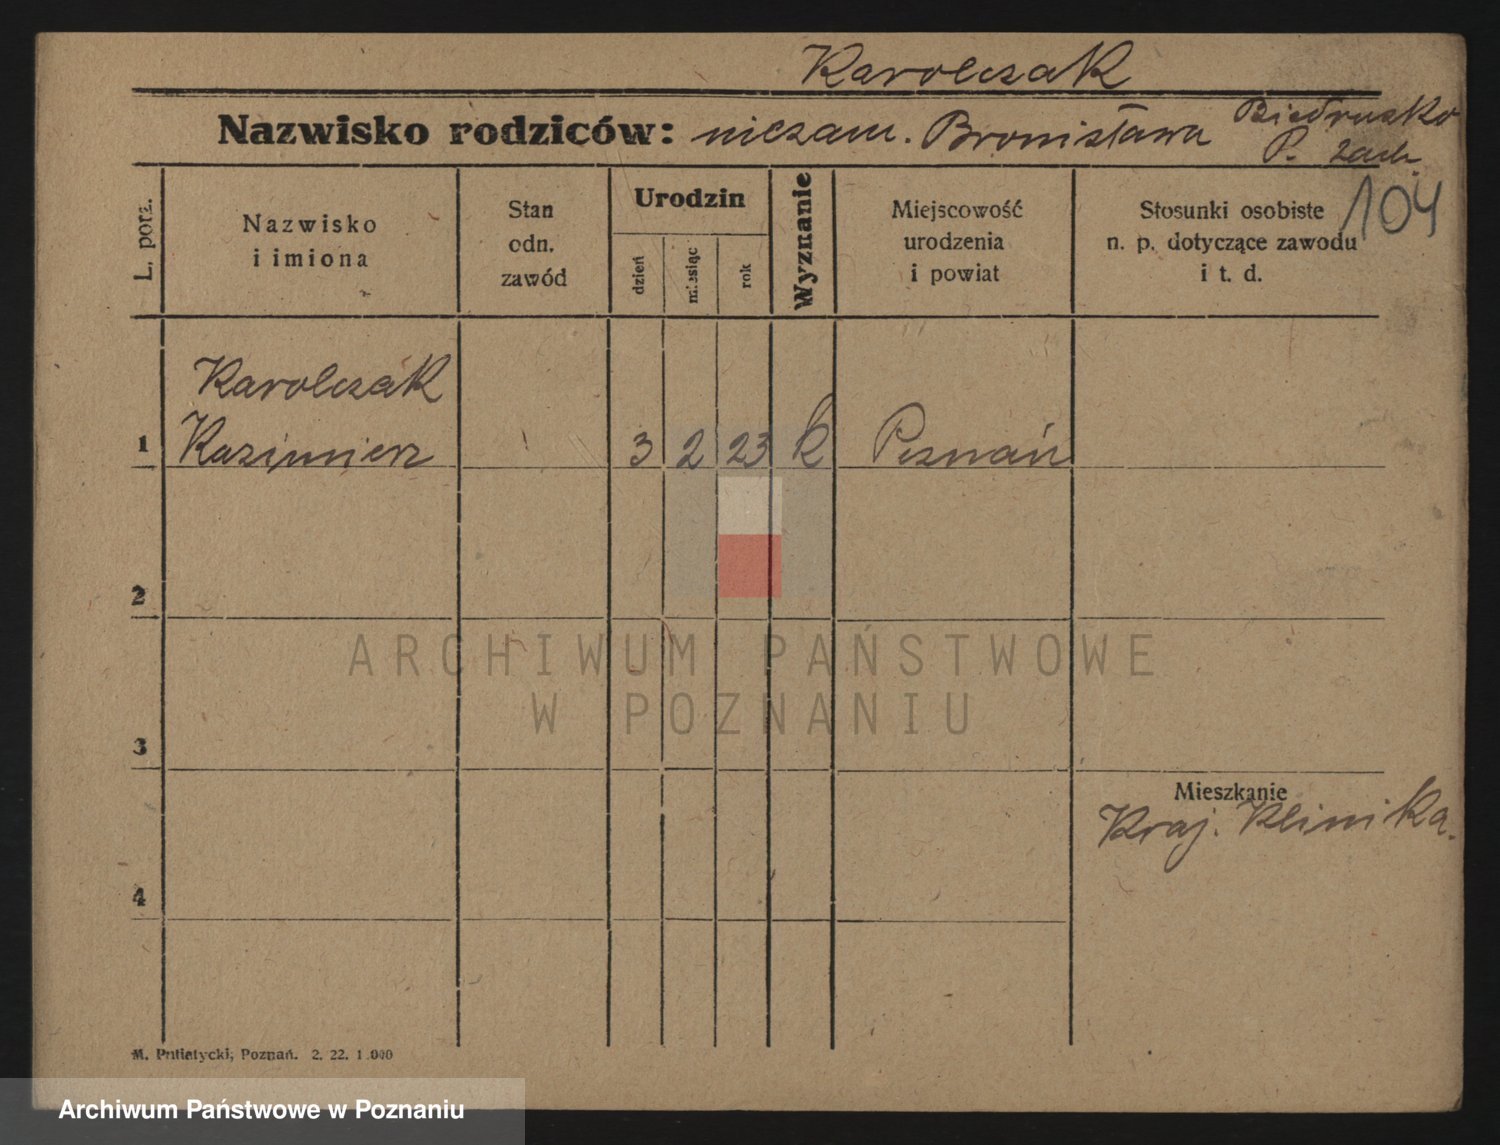 Karolczak
Nazwisko rodziców: niezam. Bronisława Biedrusko
P. zach.
104
L. porz.
Nazwisko
i imiona
Stan
odn.
zawód
Urodzin
dzień
miesiąc
rok
Wyznanie
Miejscowość
urodzenia
i powiat
Stosunki osobiste
n. p. dotyczące zawodu
i t. d.
Karolczak
1 Kazimierz 3 2 23 k Poznań
2
ARCHIWUM PAŃSTWOWE
W POZNANIU
3
Mieszkanie
Kraj. Klinika.
4
M. Putiatycki, Poznań. 2. 22. 1.000
Archiwum Państwowe w Poznaniu